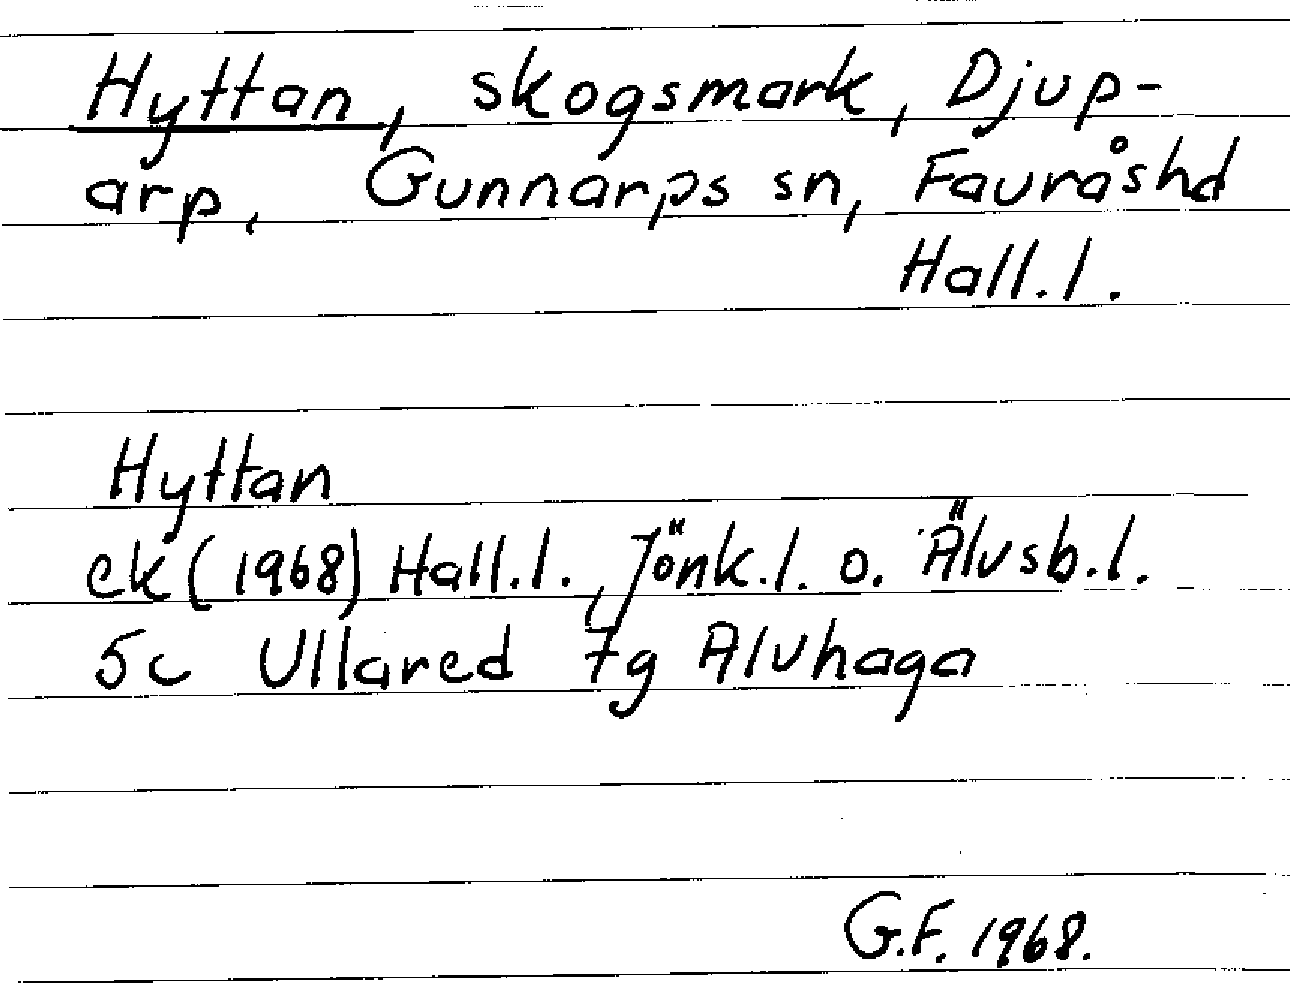 Hyttan, skogsmark, Djup-
arp, Gunnarps sn, Fauråshd
Hall.l.
Hyttan
ek (1968) Hall.l., Jönk.l. o. Älvsb.l.
5c Ullared 7g Alvhaga
G.F. 1968.